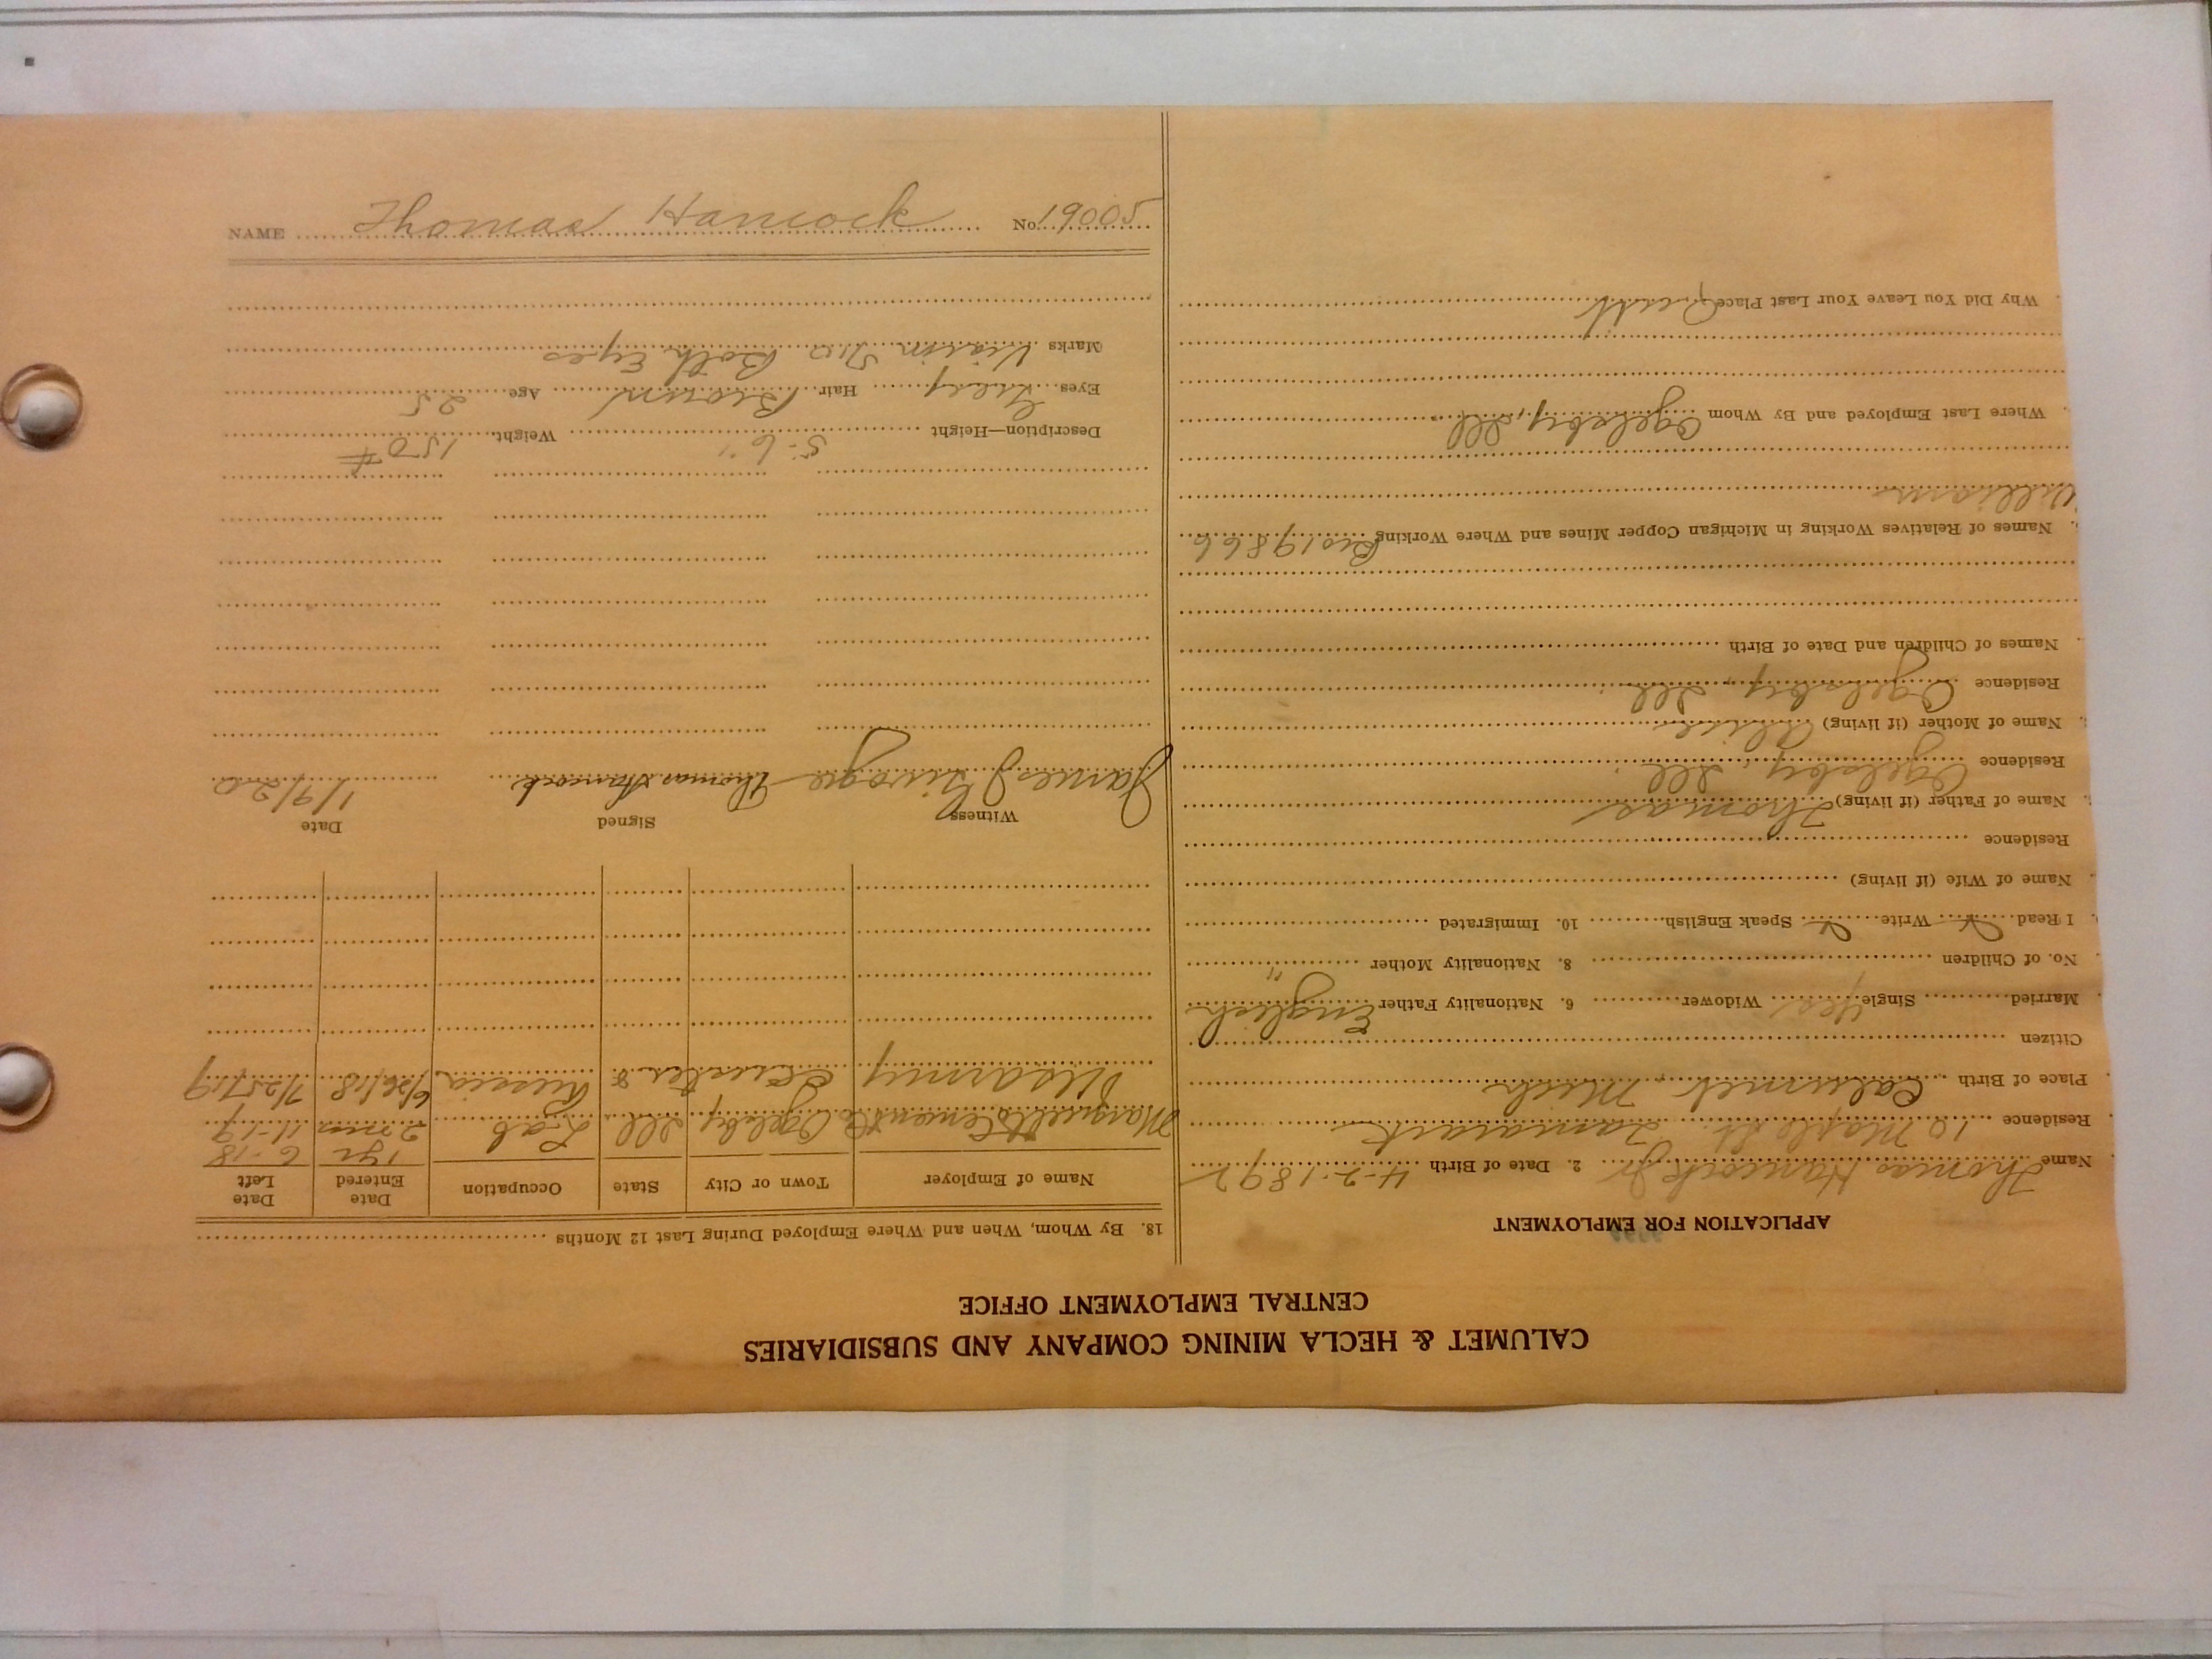 CALUMET & HECLA MINING COMPANY AND SUBSIDIARIES
CENTRAL EMPLOYMENT OFFICE
APPLICATION FOR EMPLOYMENT
Name Thomas Hancock Jr 2. Date of Birth 4-2-1892
Residence 10 Maple St. Tamarack
Place of Birth Calumet, Mich
Citizen
Married Single Yes Widower 6. Nationality Father English
No. of Children 8. Nationality Mother "
I Read Write Speak English 10. Immigrated
Name of Wife (if living)
Residence
Name of Father (if living) Thomas
Residence Ogelsby, Ill
Name of Mother (if living) Alice
Residence Ogelsby, Ill
Names of Children and Date of Birth
Names of Relatives Working in Michigan Copper Mines and Where Working Bro 19866
William
Where Last Employed and By Whom Ogelsby, Ill
Why Did You Leave Your Last Place Quit
18. By Whom, When and Where Employed During Last 12 Months
Name of Employer Town or City State Occupation Date Entered Date Left
Marquette Cement Co Ogelsby Ill Lab 1 yr 6-18
2 mos 11-19
US Army Russia 6/26/18 7/25/19
Witness Signed Date
James Thomas Hancock 1/9/20
Description—Height 5' 6" Weight 150#
Eyes Grey Hair Brown Age 25
Marks Vision Both Eyes
NAME Thomas Hancock No. 19005